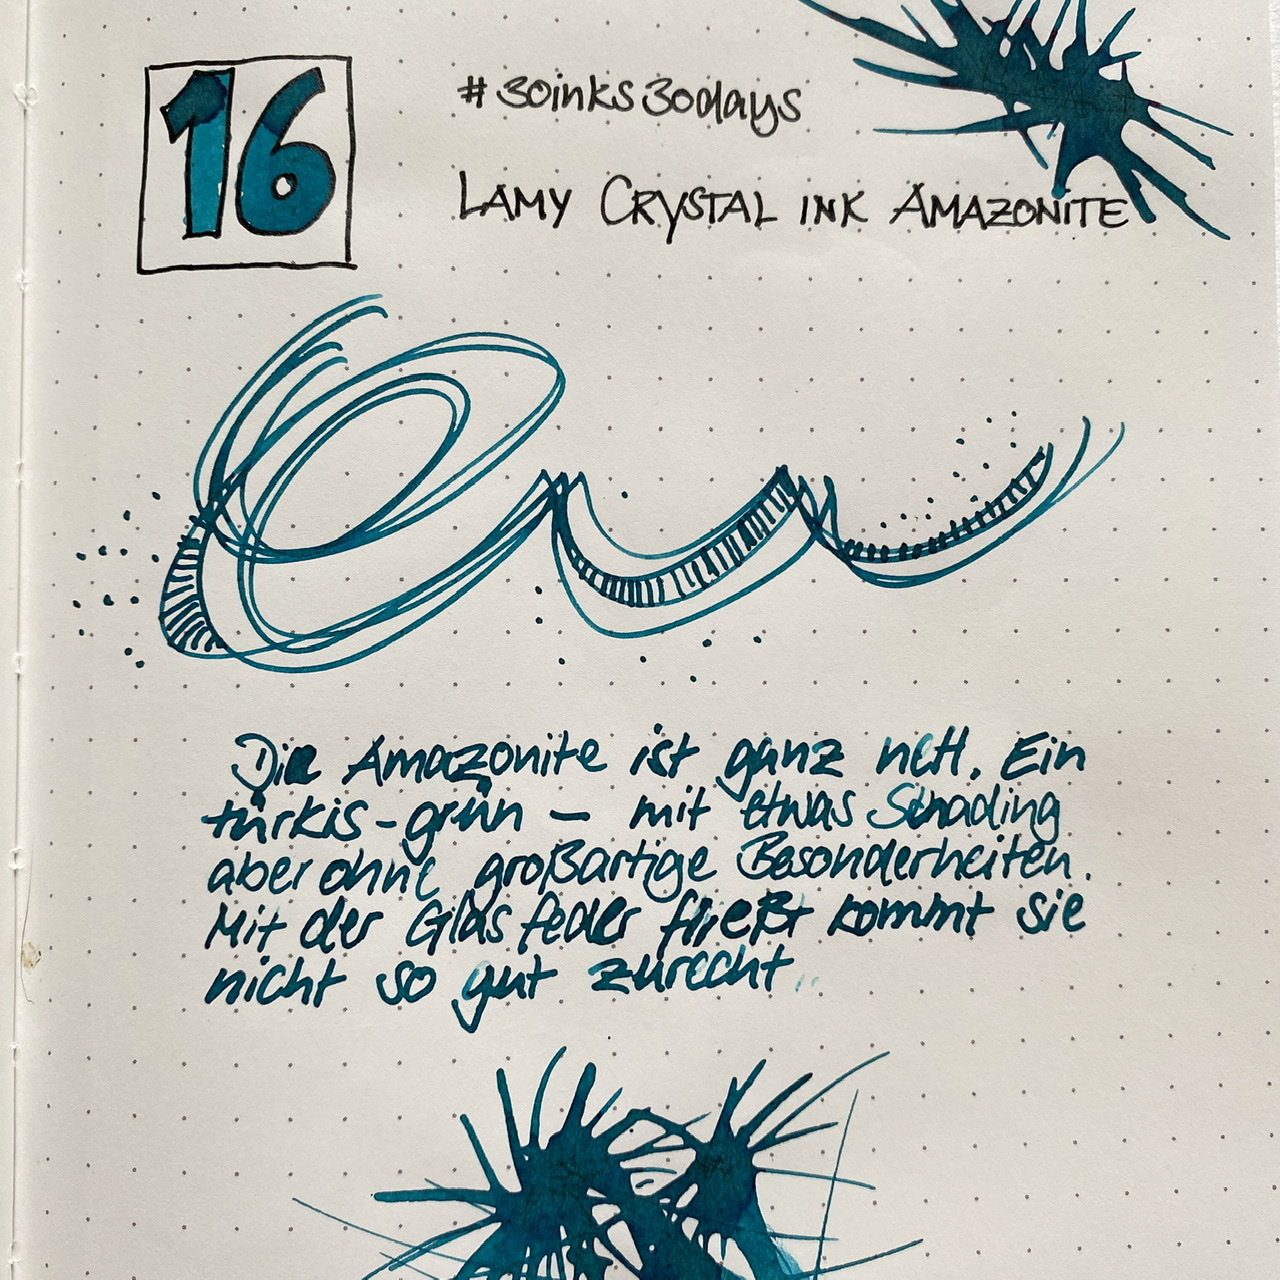 16
#30inks30days
LAMY CRYSTAL INK AMAZONITE
Die Amazonite ist ganz nett. Ein
türkis-grün – mit etwas Schading
aber ohne großartige Besonderheiten.
Mit der Glasfeder fließt kommt sie
nicht so gut zurecht..